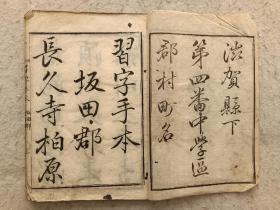 滋賀縣下
第四番中学區
郡村町名
習字手本
坂田郡
長久寺柏原